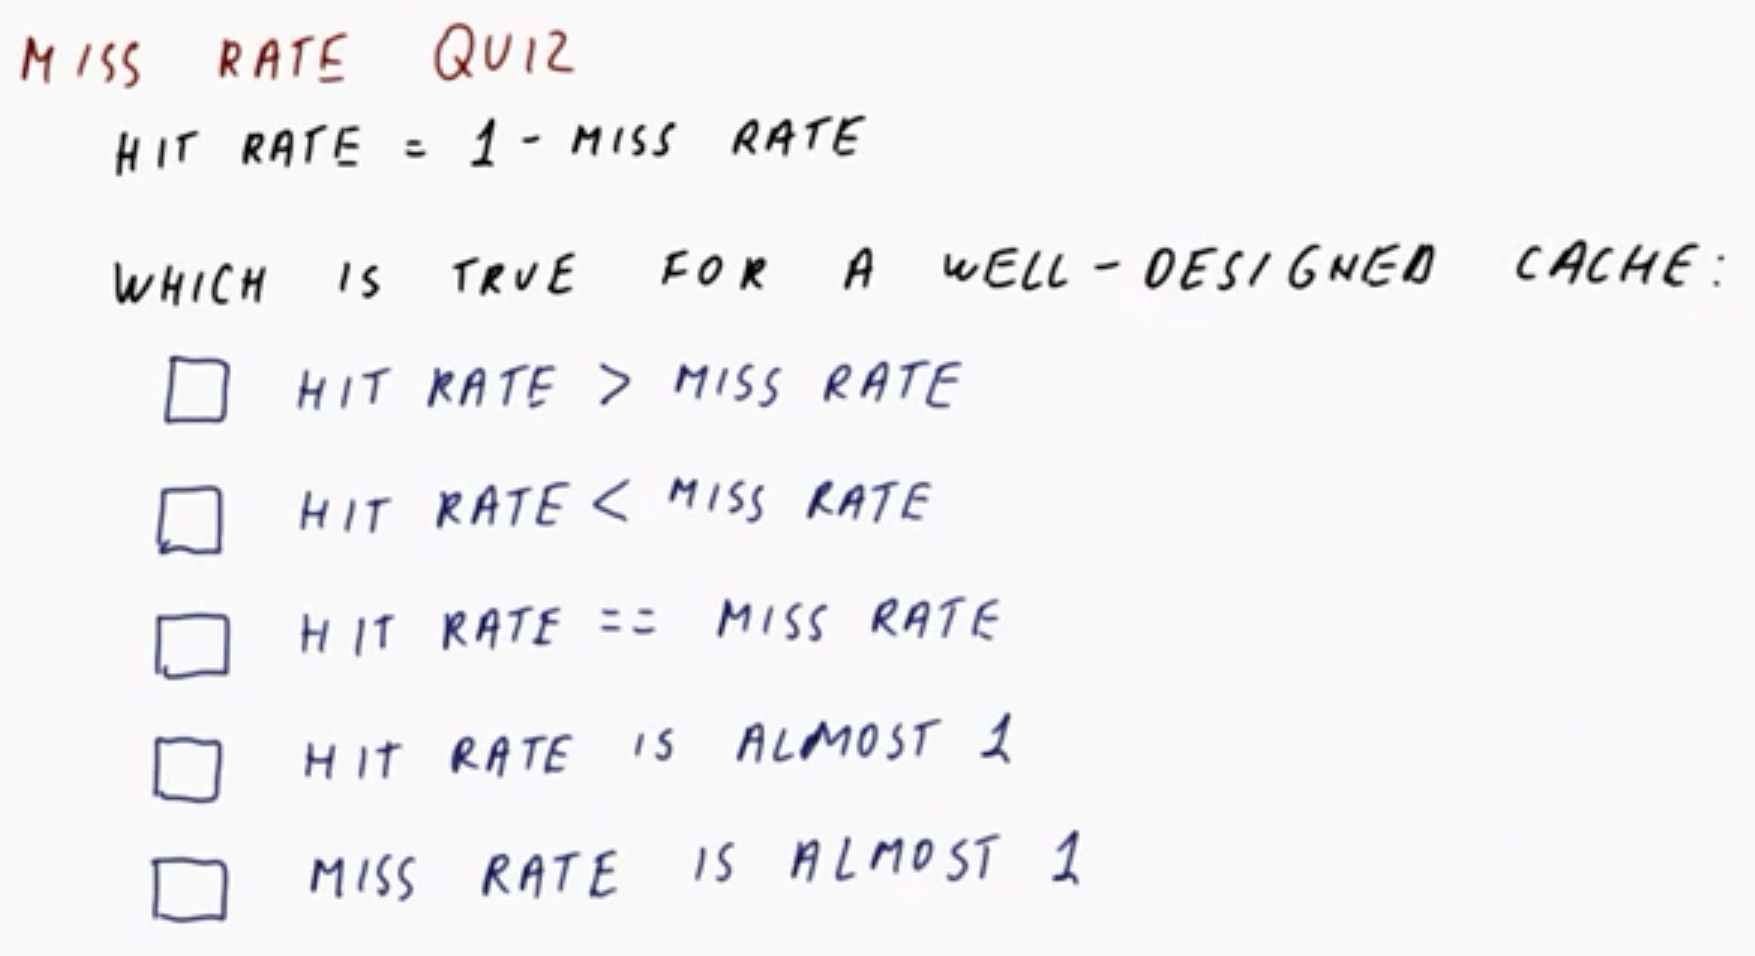 MISS RATE QUIZ
HIT RATE = 1 - MISS RATE
WHICH IS TRUE FOR A WELL-DESIGNED CACHE:
HIT RATE > MISS RATE
HIT RATE < MISS RATE
HIT RATE == MISS RATE
HIT RATE IS ALMOST 1
MISS RATE IS ALMOST 1